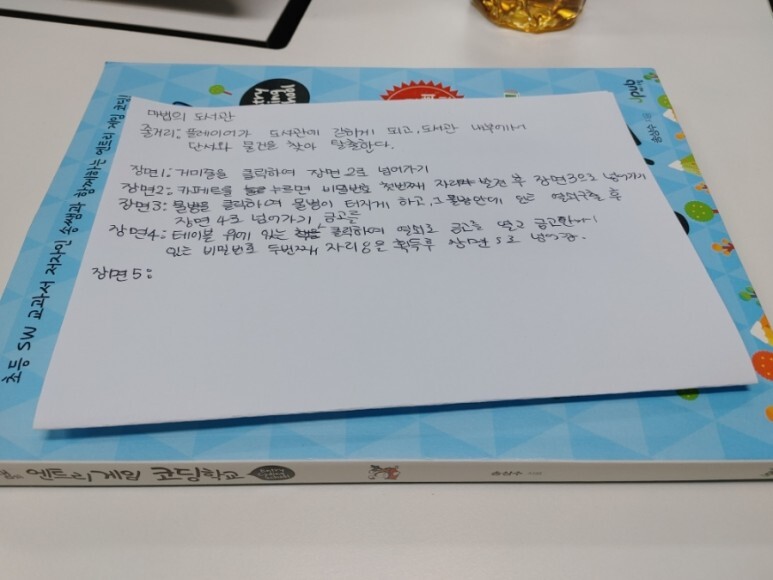 마법의 도서관
줄거리: 플레이어가 도서관에 갇히게 되고, 도서관 내부에서
단서와 물건을 찾아 탈출한다.
장면1: 거미줄을 클릭하여 장면 2로 넘어가기
장면2: 카페트를 누르면 비밀번호 첫번째 자리 발견 후 장면3으로 넘어가기
장면3: 물병을 클릭하여 물병이 터지게 하고, 그 물병안에 있는 열쇠 후
장면 4로 넘어가기
금고를
장면4: 테이블 위에 있는 클릭하여 열쇠로 금고를 열고 금고안에
있는 비밀번호 두번째 자리 8은 획득후 장면 5로 넘어감.
장면5:
초등 SW 교과서 저자인 송쌤과 함께하는 엔트리 게임 코딩!
엔트리 게임 코딩학교
송상수 지음
Jpub